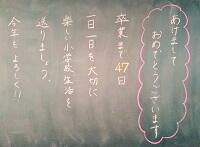 あけまして
おめでとうございます
卒業まで47日
一日一日を大切に
楽しい小学校生活を
送りましょう。
今年もよろしく!!